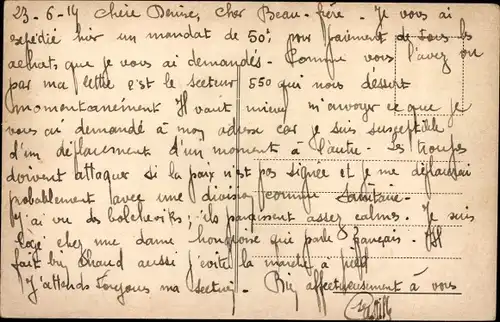 23-6-19 Chère Denise, cher Beau-frère. Je vous ai
expédié hier un mandat de 50f pour paiement de tous les
achats que je vous ai demandés. Comme vous l'avez vu
par ma lettre c'est le secteur 550 qui nous dessert
momentanément Il vaut mieux m'envoyer ce que je
vous ai demandé à mon adresse car je suis susceptible
d'un déplacement d'un moment à l'autre. Les troupes
doivent attaquer si la paix n'est pas signée et je me déplacerai
probablement avec une division comme sanitaire.
J'ai vu des bolcheviks; ils paraissent assez calmes. Je suis
logé chez une dame hongroise qui parle français. Il
fait bien chaud aussi j'évite la marche à pied
J'attends toujours ma secteur. Bien affectueusement à vous